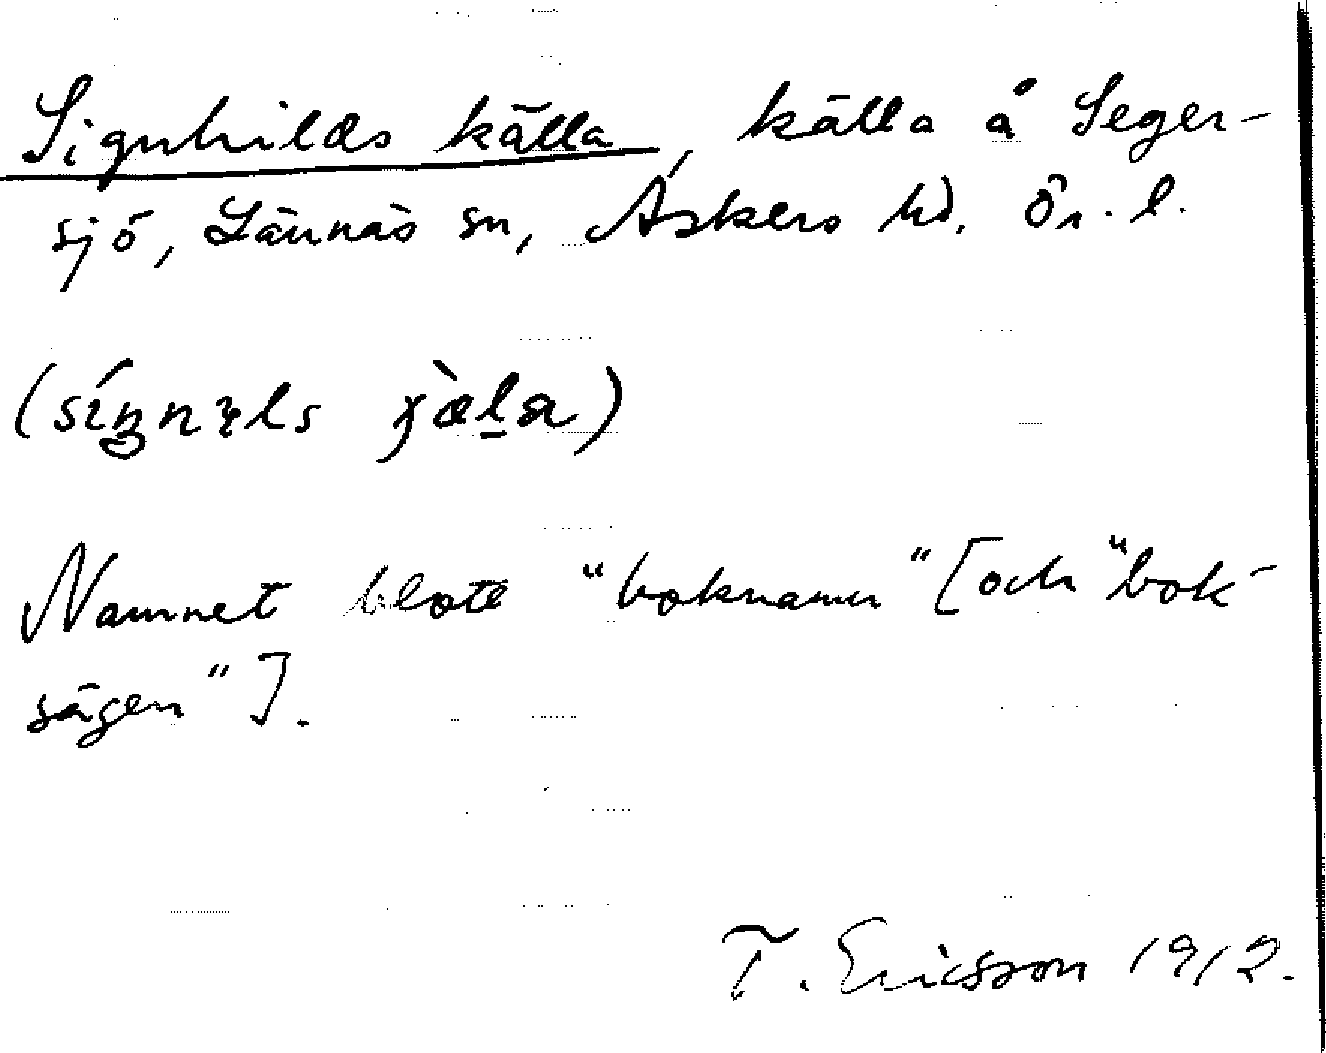 Signhilds källa, källa å Seger-
sjö, Lännäs sn, Askers hd. Ör. l.
Namnet blott "boknamn" [och "bok-
sägen"].
T. Ericsson 1912.